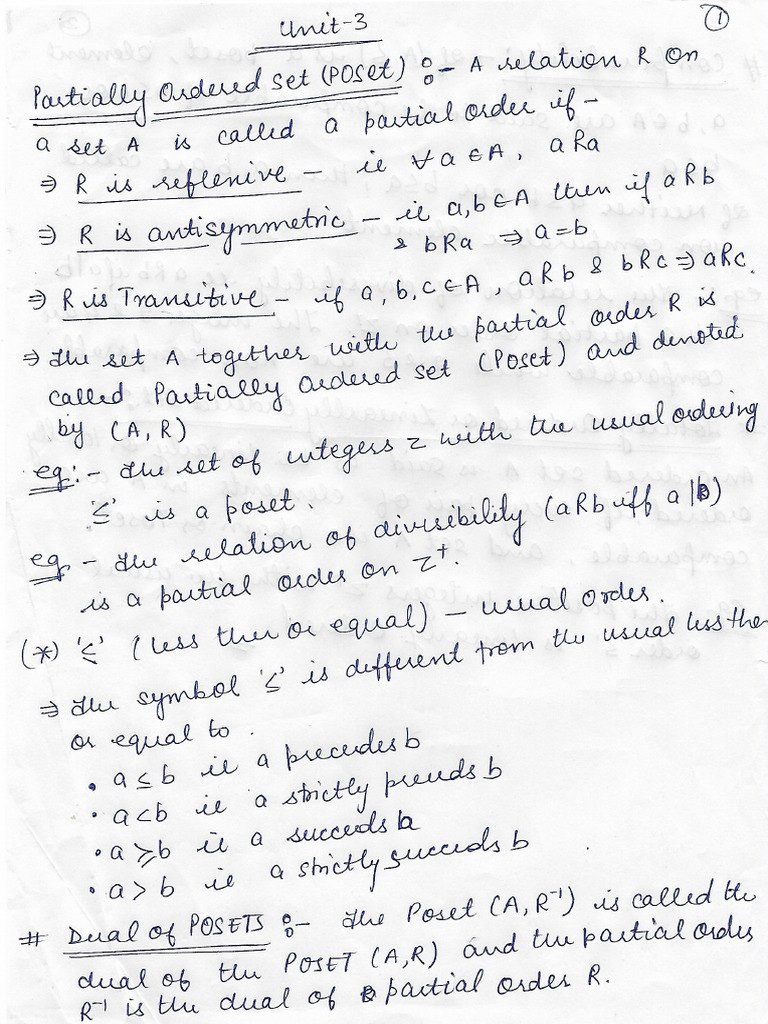 Unit-3
1
Partially Ordered set (POset) :- A relation R on
a set A is called a partial order if -
⇒ R is reflenive - ie ∀ a ∈ A, aRa
⇒ R is antisymmetric - ie a, b ∈ A then if aRb
& bRa ⇒ a = b
⇒ R is Transitive - if a, b, c ∈ A, aRb & bRc ⇒ aRc.
⇒ The set A together with the partial order R is
called Partially Ordered set (Poset) and denoted
by (A, R)
eg:- The set of integers z with the usual ordering
'≤' is a poset.
eg - The relation of divisibility (aRb iff a|b)
is a partial order on Z⁺.
(*) '≤' (less then or equal) - usual order.
⇒ The symbol '≤' is different from the usual less then
or equal to.
• a ≤ b ie a precedes b
• a < b ie a strictly preuds b
• a ≥ b ie a succeeds b
• a > b ie a strictly succeeds b
# Dual of POSETS :- The Poset (A, R⁻¹) is called the
dual of the POSET (A,R) and the partial order
R⁻¹ is the dual of partial order R.